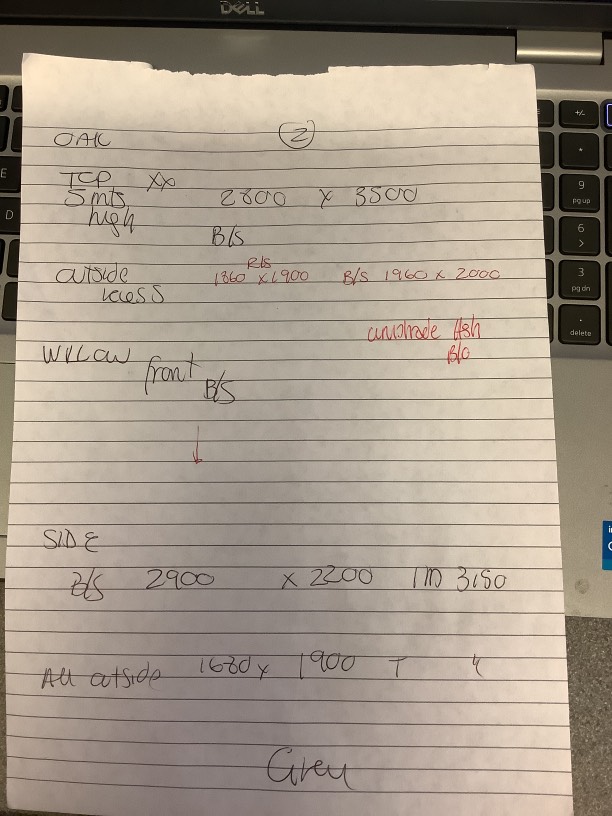 DELL
OAK
2
TOP XX
5 mts
high
2800 x 3500
B/S
R/S
outside 1860 x 1900 B/S 1960 x 2000
recess
Ash
B/O
WILLOW
front
B/S
SIDE
B/S 2900 x 2200 IM 3150
All outside 1680 x 1900 T
Grey
+/-
*
9
pg up
6
>
3
pg dn
.
delete
E
D